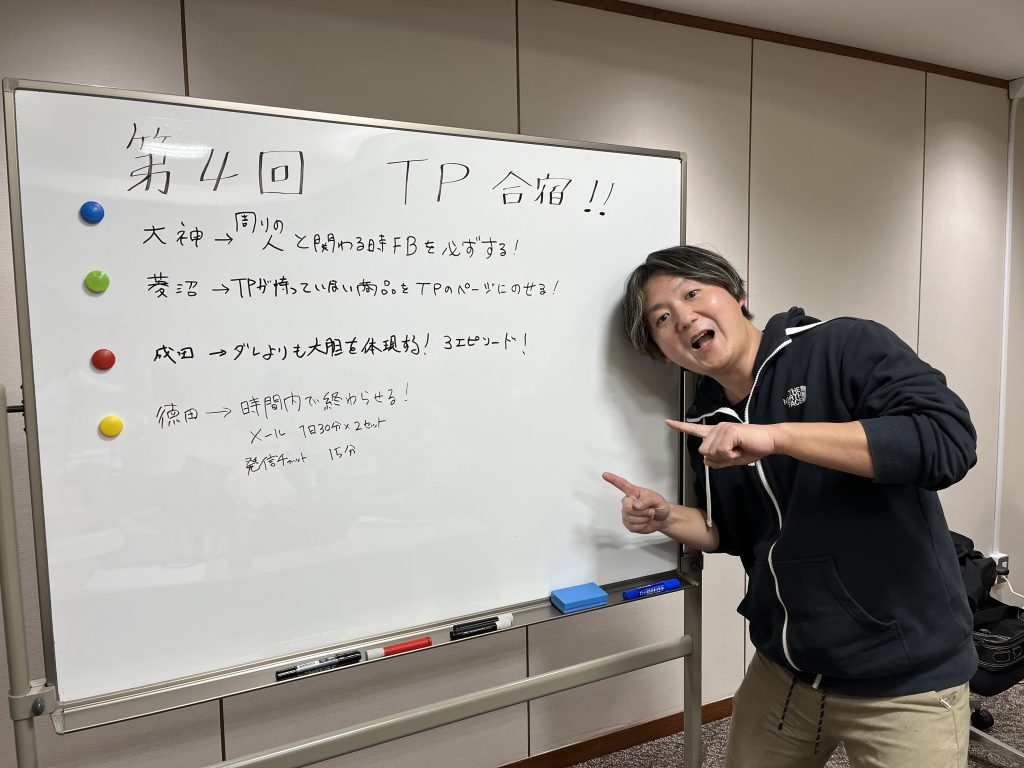 第4回 TP 合宿!!
大神→周りの人と関わる時FBを必ずする!
菱沼→TPが持っていない商品をTPのページにのせる!
成田→ダレよりも大胆を体現する! 3エピソード!
徳田→時間内で終わらせる!
メール 1日30分×2セット
発信チャット 15分
THE NORTH FACE